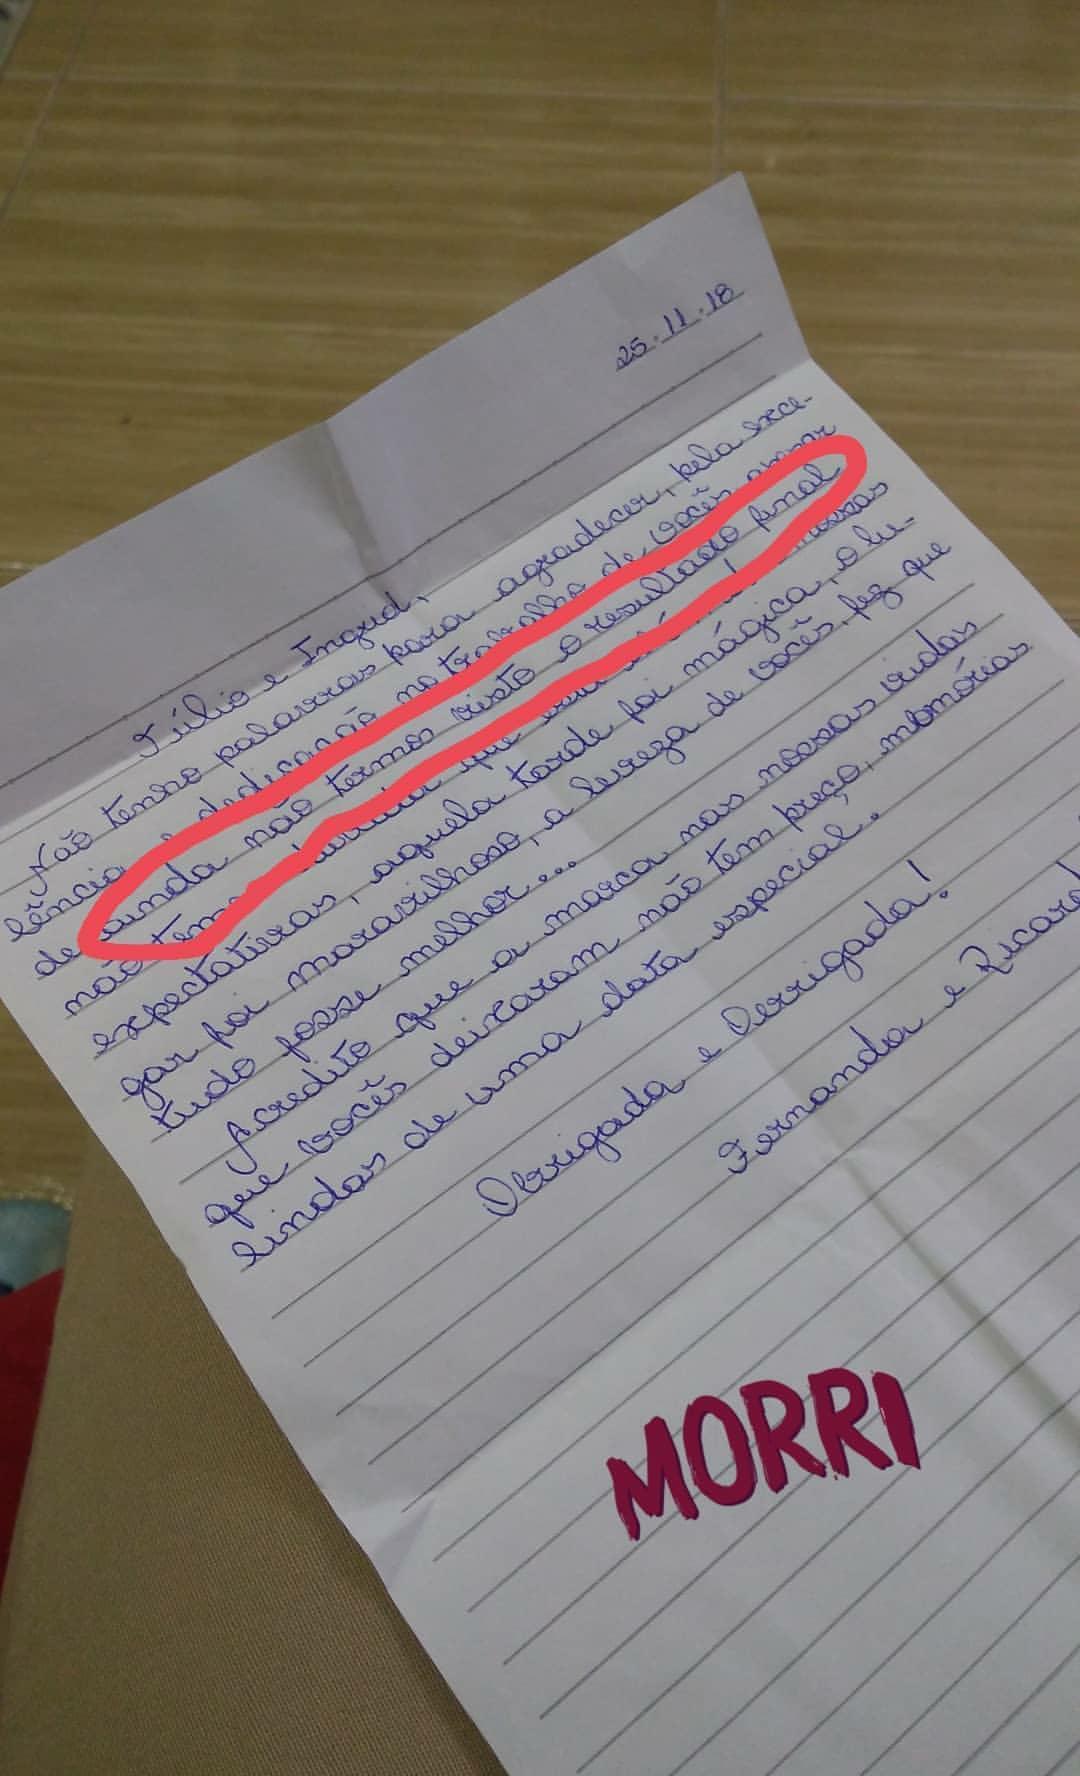 25.11.18
Túlio e Ingrid,
Não tenho palavras para agradecer, pela exce-
lência e dedicação no trabalho de vocês apesar
de ainda não termos visto o resultado final
não temos dúvida que nossas
expectativas, aquela tarde foi mágica, o lu-
gar foi maravilhoso, a leveza de vocês, fez que
tudo fosse melhor...
Acredito que a marca nas nossas vidas
que vocês deixaram não tem preço, memórias
lindas de uma data especial.
Obrigada e Obrigada!
Fernanda e Ricard
MORRI